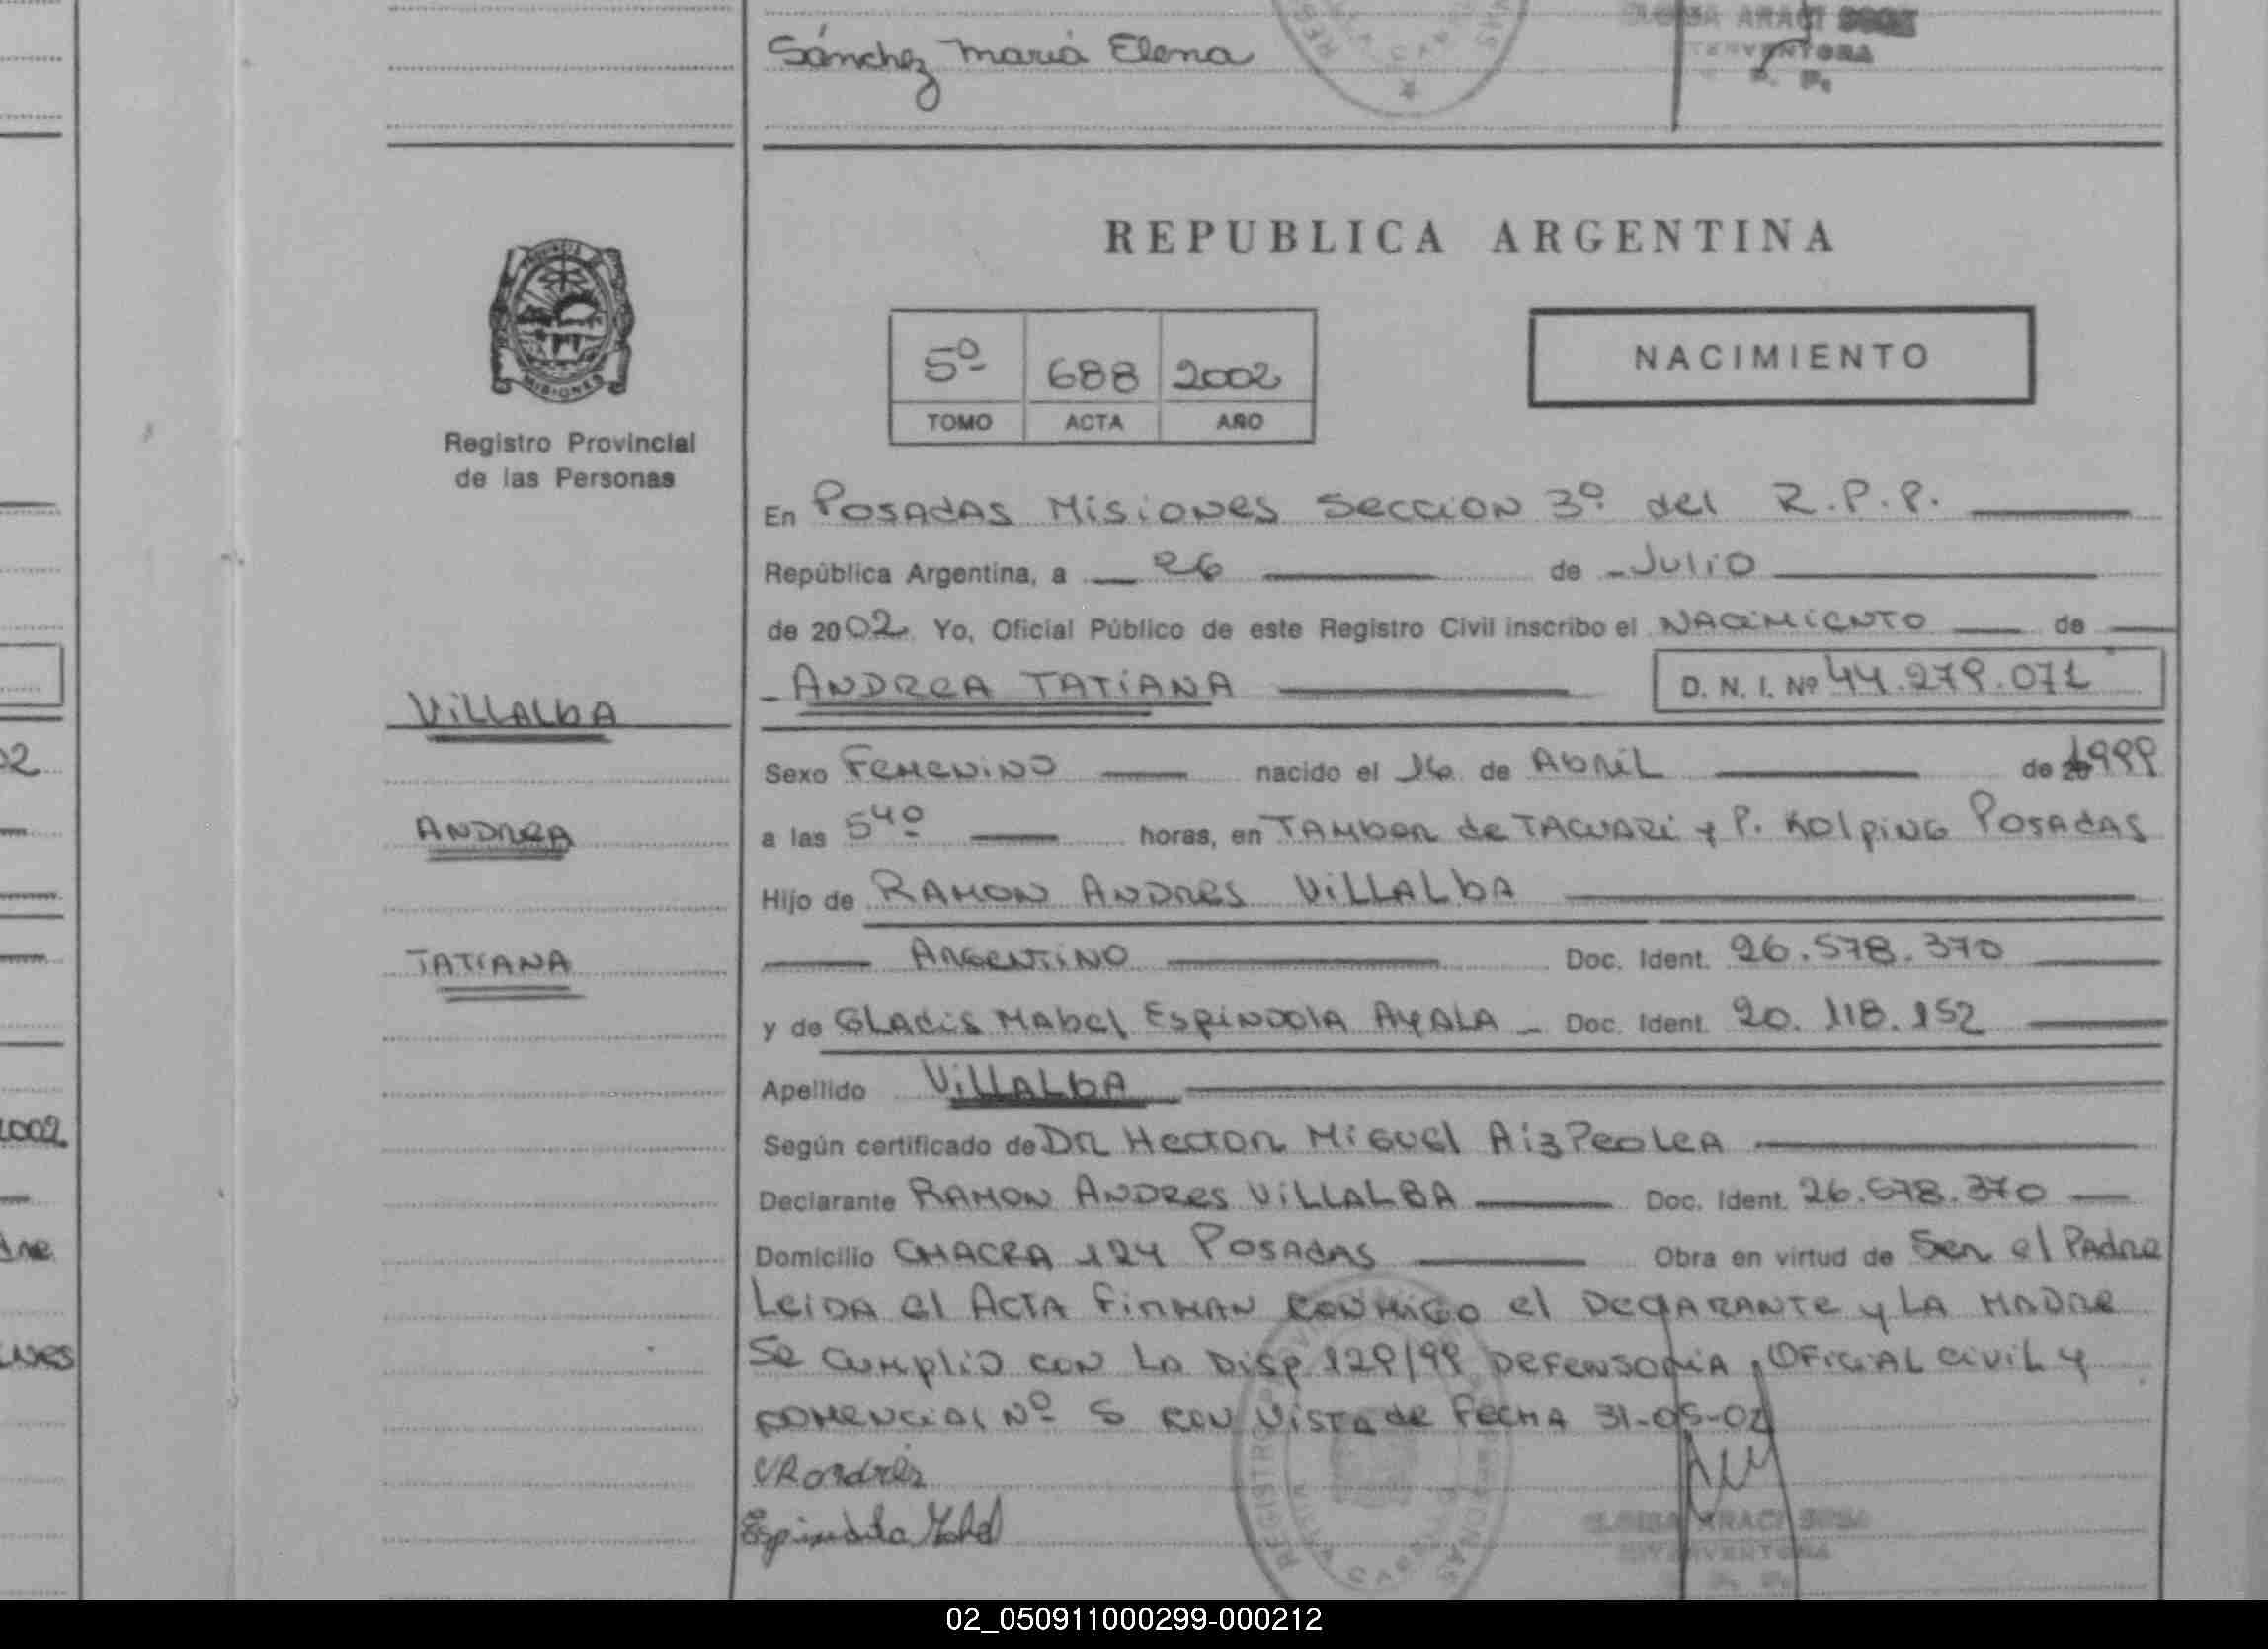 Sánchez María Elena
INTERVENTORA
REPUBLICA ARGENTINA
MISIONES
Registro Provincial
de las Personas
5º 688 2002
TOMO ACTA AÑO
NACIMIENTO
En POSADAS MISIONES SECCION 3º del R.P.P.
República Argentina, a 26 de JULIO
de 2002 Yo, Oficial Público de este Registro Civil inscribo el NACIMIENTO de
ANDREA TATIANA D. N. I. Nº 44.279.071
VILLALBA
Sexo FEMENINO nacido el 16 de ABRIL de 1999
ANDREA
a las 5 40 horas, en TAMBOR de TACUARI y P. KOLPING POSADAS
Hijo de RAMON ANDRES VILLALBA
TATIANA
ARGENTINO Doc. Ident. 26.578.370
y de GLADIS MABEL ESPINDOLA AYALA Doc. Ident. 20.118.152
Apellido VILLALBA
Según certificado de DR HECTOR MIGUEL AIZPEOLEA
Declarante RAMON ANDRES VILLALBA Doc. Ident. 26.578.370
Domicilio CHACRA 124 POSADAS Obra en virtud de Ser el PADRE
LEIDA el ACTA FIRMAN CONMIGO el DECLARANTE y LA MADRE
Se CUMPLIO CON LA DISP 129/99 DEFENSORIA OFICIAL CIVIL y
COMERCIAL Nº 5 CON VISTA de FECHA 31-05-02
VR andrés
Espindola Mabel
ELOISA ARACI SOSA
INTERVENTORA
02_050911000299-000212